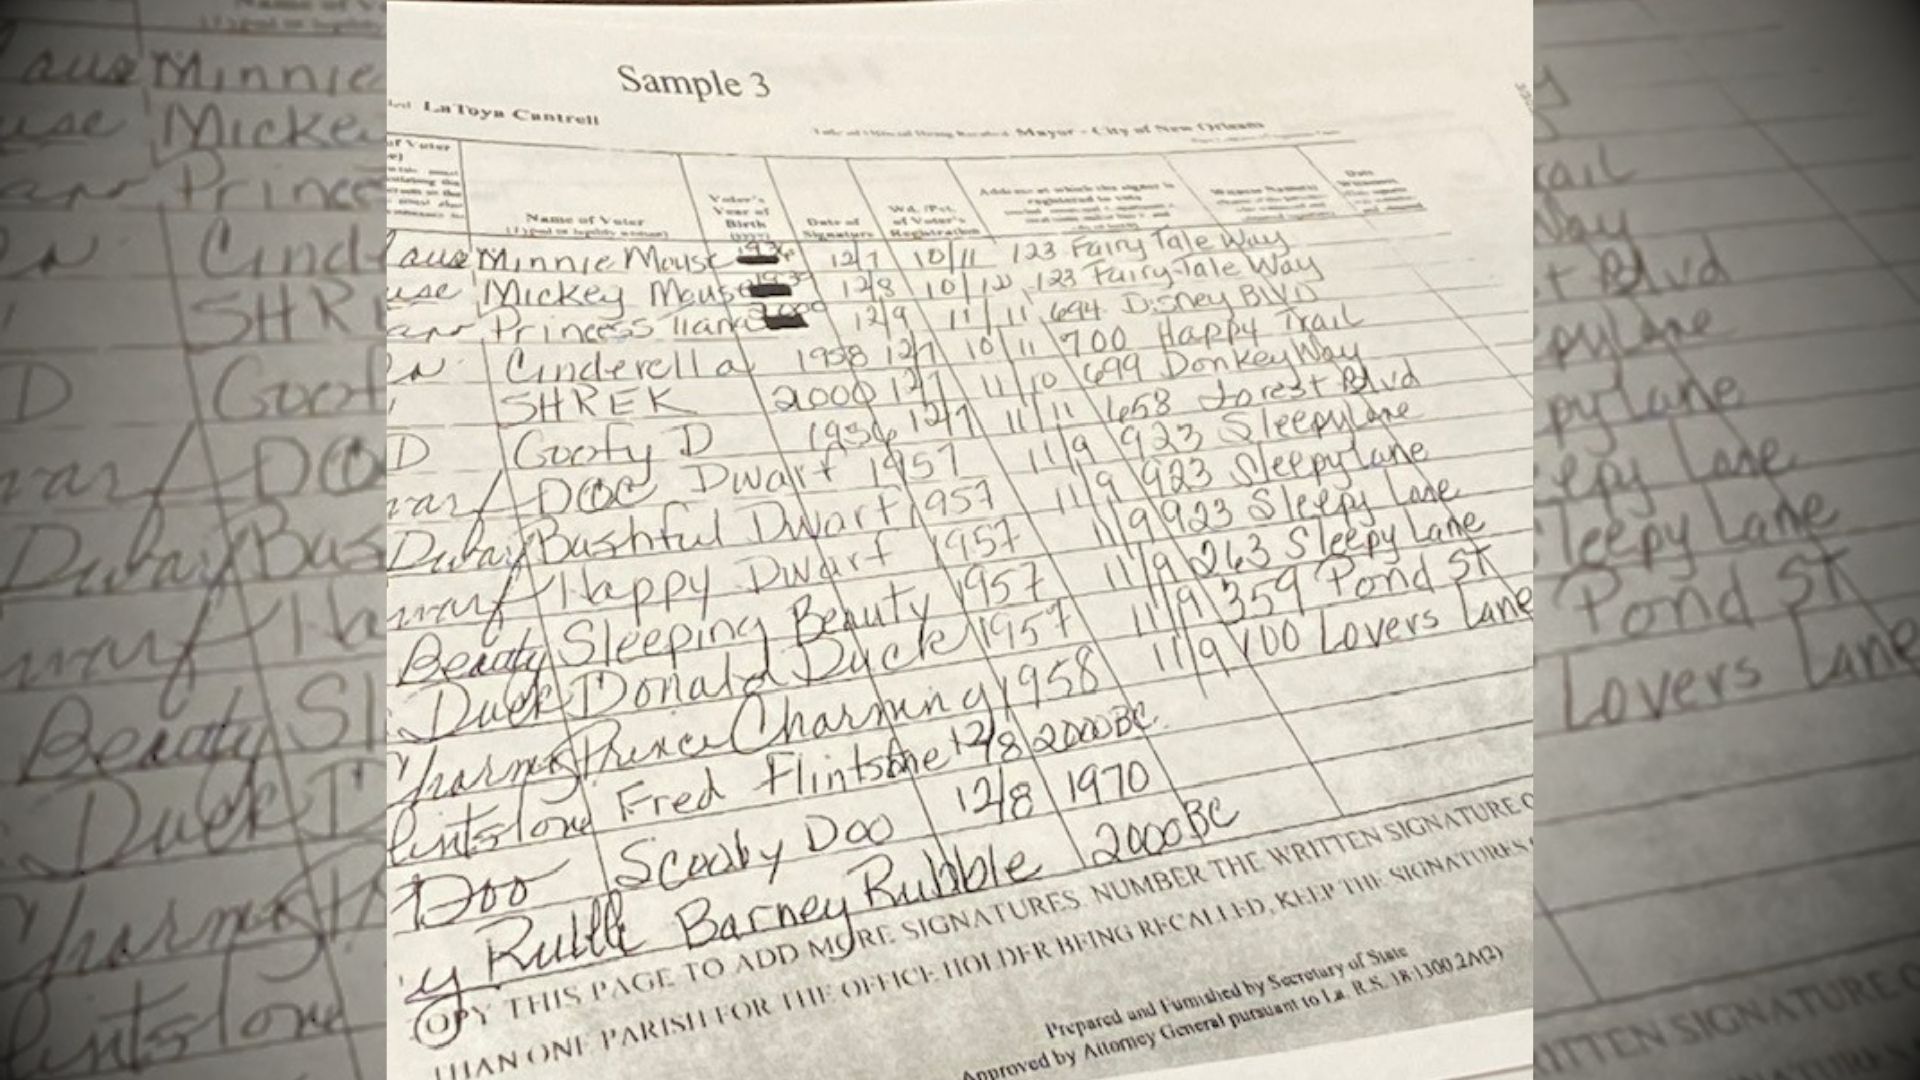 Sample 3
LaToya Cantrell
Title of Official Being Recalled Mayor - City of New Orleans
Name of Voter
(Typed or legibly written)
Voter's
Year of
Birth
(YYYY)
Date of
Signature
Wd. /Pct.
of Voter's
Registration
Address at which the signer is
registered to vote
Minnie Mouse 12/7 10/11 123 Fairy Tale Way
use Mickey Mouse 12/8 10/12 123 Fairy Tale Way
Princess Tiana 12/9 11/11 694 Disney BLVD
Cinderella 1958 12/7 10/11 700 Happy Trail
SHREK 2000 12/7 11/10 699 Donkey Way
D Goofy D 1936 12/7 11/11 658 Forest Blvd
DOC Dwarf 1957 11/9 923 Sleepy Lane
Dwarf Bashful Dwarf 1957 11/9 923 Sleepy Lane
Happy Dwarf 1957 11/9 923 Sleepy Lane
Beauty Sleeping Beauty 1957 11/9 263 Sleepy Lane
Duck Donald Duck 1957 11/9 359 Pond St
Prince Charming 1958 11/9 100 Lovers Lane
lintstone Fred Flintstone 12/8 2000 BC.
Doo Scooby Doo 12/8 1970
y Rubble Barney Rubble 2000 BC
OPY THIS PAGE TO ADD MORE SIGNATURES. NUMBER THE WRITTEN SIGNATURE
THAN ONE PARISH FOR THE OFFICE HOLDER BEING RECALLED, KEEP THE SIGNATURES
Prepared and Furnished by Secretary of State
Approved by Attorney General pursuant to La. R.S. 18:1300.2A(2)